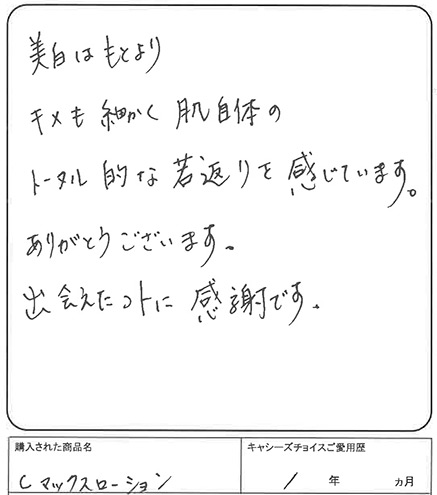 美白はもとより
キメも細かく肌自体の
トータル的な若返りを感じています。
ありがとうございます。
出会えたコトに感謝です.
購入された商品名
キャシーズチョイスご愛用歴
Cマックスローション
1年 ヵ月